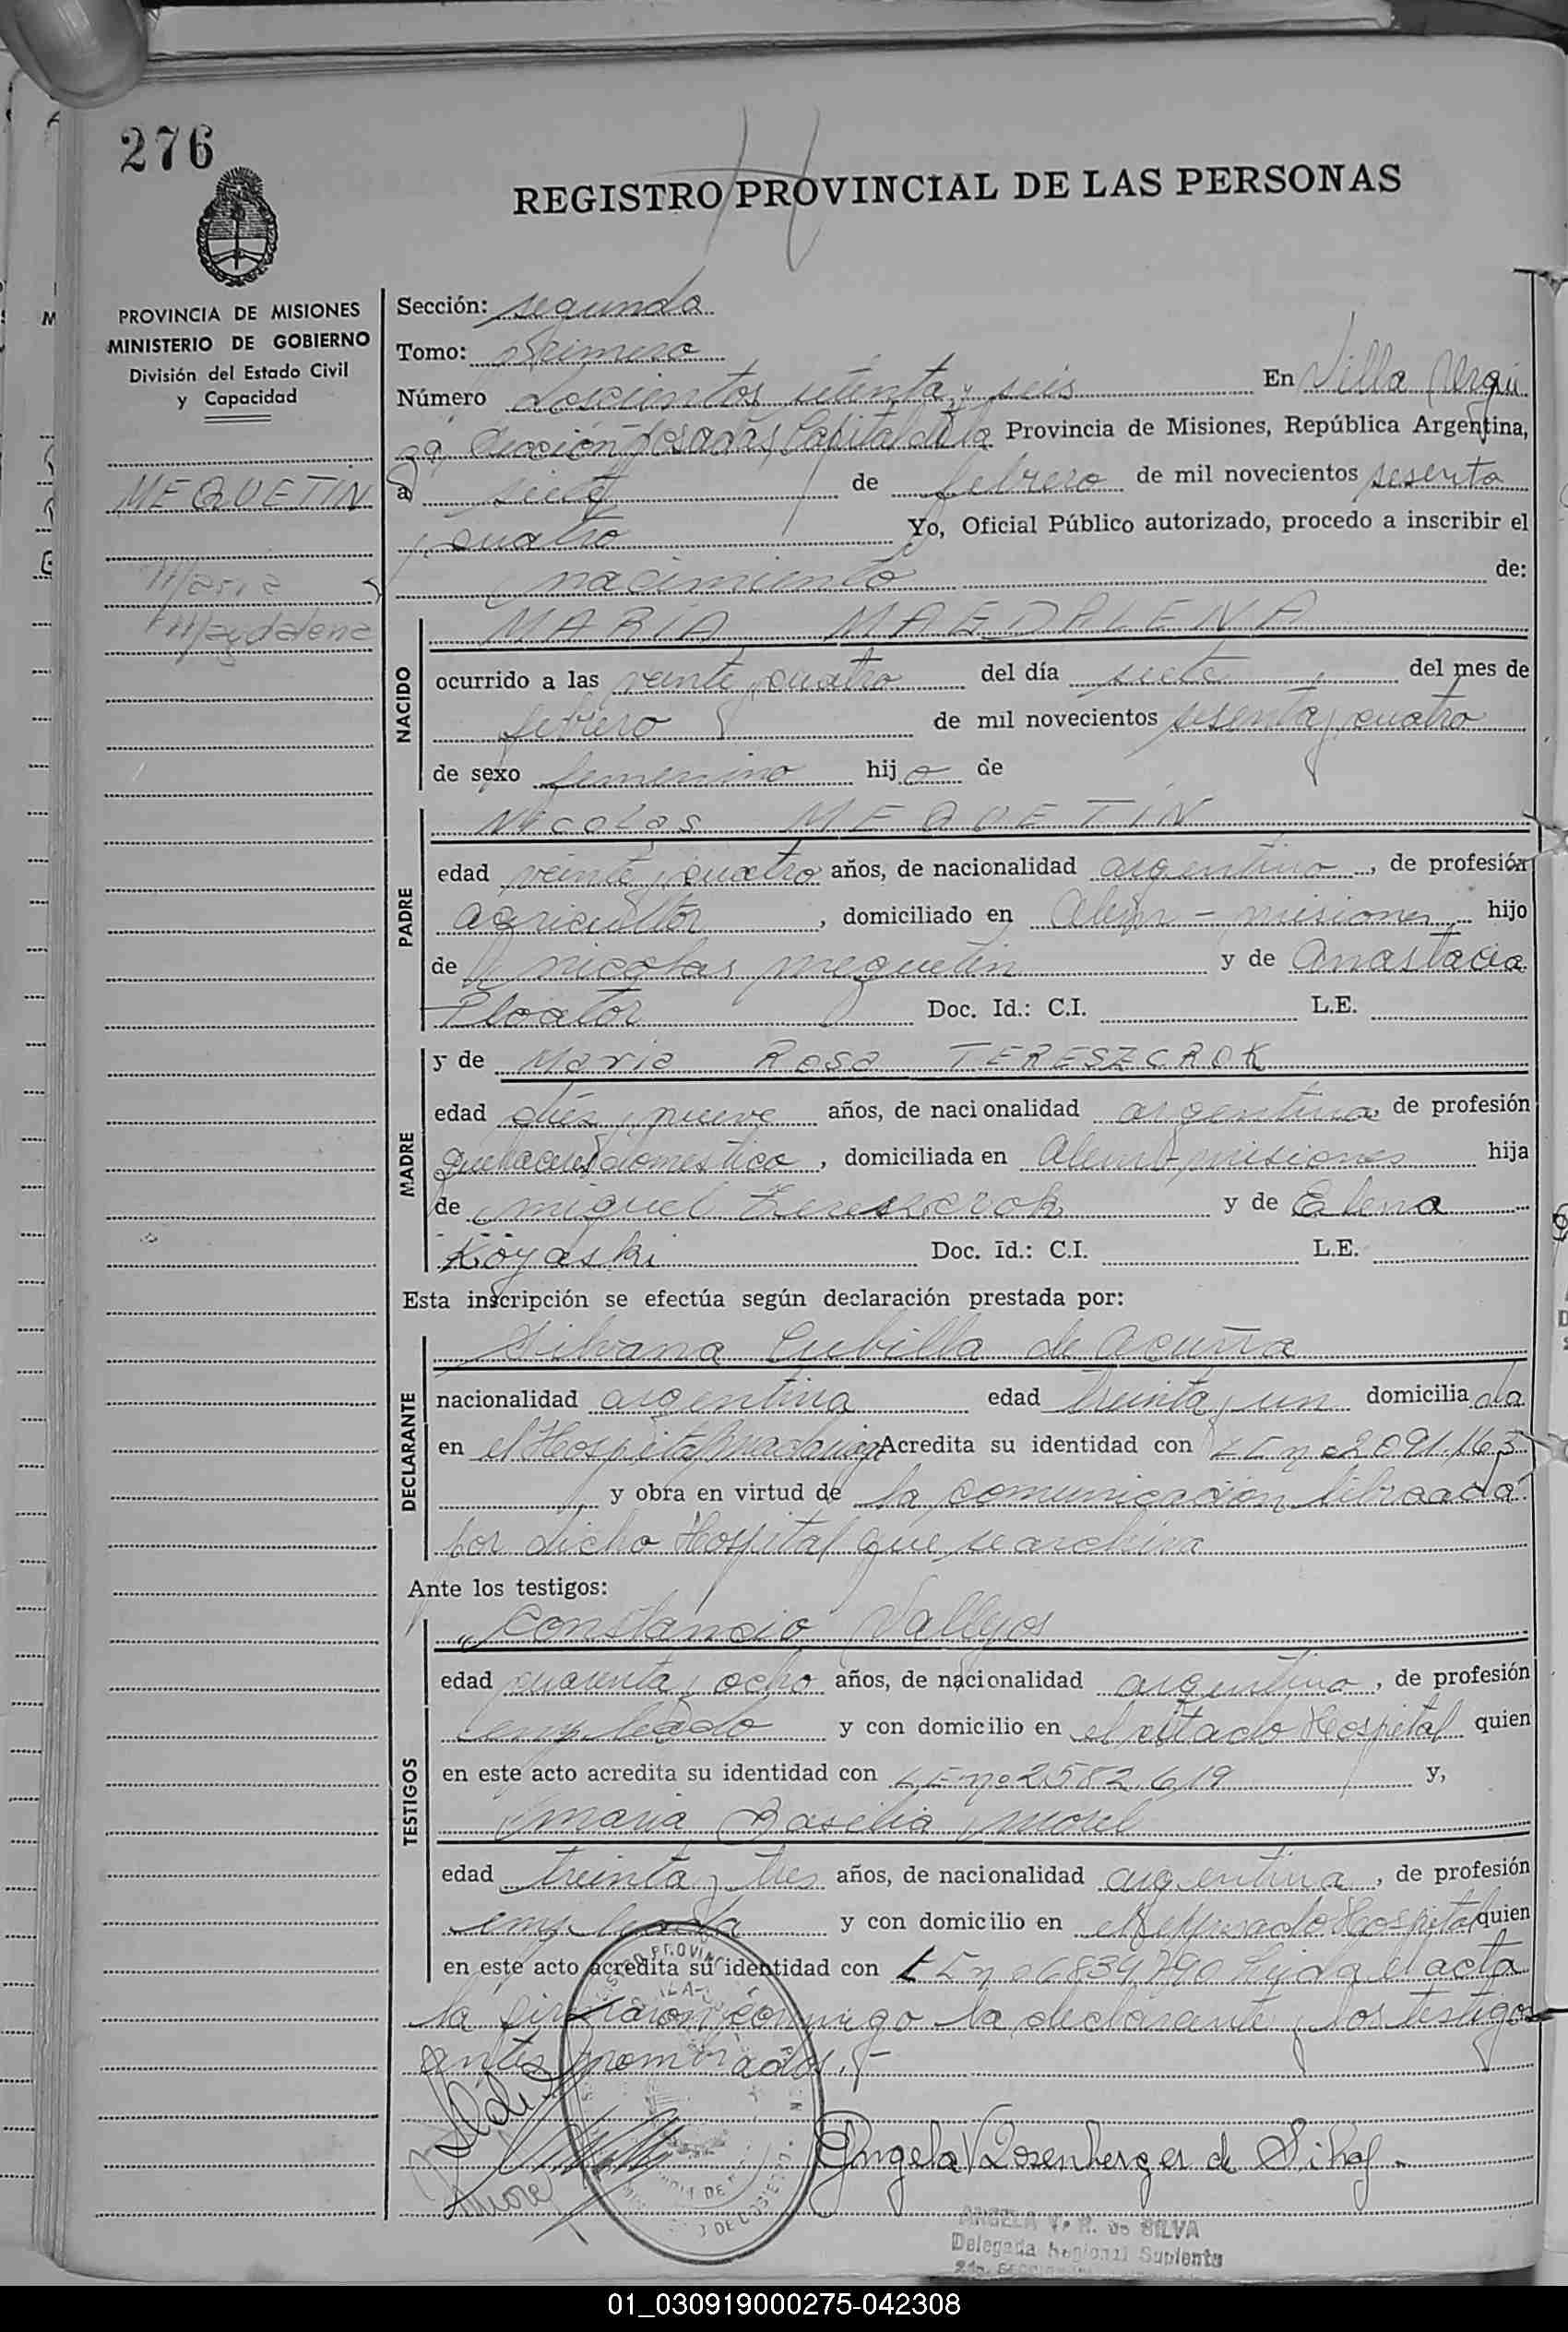 276
REGISTRO PROVINCIAL DE LAS PERSONAS
PROVINCIA DE MISIONES
MINISTERIO DE GOBIERNO
División del Estado Civil
y Capacidad
MEQUETIN
Maria
Magdalena
Sección: segunda
Tomo: Primero
Número doscientos setenta y seis En Villa Urqui
za, Sección Posadas, Capital de la Provincia de Misiones, República Argentina,
a siete de febrero de mil novecientos sesenta
y cuatro Yo, Oficial Público autorizado, procedo a inscribir el
nacimiento de:
NACIDO
MARIA MAGDALENA
ocurrido a las veinte y cuatro del día siete del mes de
febrero de mil novecientos sesenta y cuatro
de sexo femenino hija de
PADRE
Nicolas MEQUETIN
edad veinte y cuatro años, de nacionalidad argentino, de profesión
agricultor, domiciliado en Alem - misiones hijo
de nicolas mequetin y de Anastacia
Ploator Doc. Id.: C.I. L.E.
MADRE
y de Maria Rosa TERESZCROK
edad dies y nueve años, de nacionalidad argentina de profesión
quehacer domestico, domiciliada en Alem misiones hija
de miguel Tereszcrok y de Elena
Koyaski Doc. Id.: C.I. L.E.
Esta inscripción se efectúa según declaración prestada por:
DECLARANTE
Silvana Cubilla de Acuña
nacionalidad argentina edad treinta y un domiciliada
en el Hospital Madariaga Acredita su identidad con LE nº 2091.163
y obra en virtud de la comunicación libraada
por dicho Hospital que se archiva
Ante los testigos:
TESTIGOS
Constancio Vallejos
edad cuarenta y ocho años, de nacionalidad argentino, de profesión
empleado y con domicilio en el citado Hospital quien
en este acto acredita su identidad con LE nº 2.582.619 y,
maria Basilia Morel
edad treinta y tres años, de nacionalidad argentina, de profesión
empleada y con domicilio en el expresado Hospital quien
en este acto acredita su identidad con LE nº 6839790 Leida el acta
la firmaron conmigo la declarante y los testigos
antes nombrados.-
Angela V Rosenberger de Silva
ANGELA V. R. de SILVA
Delegada Regional Suplente
01_030919000275-042308